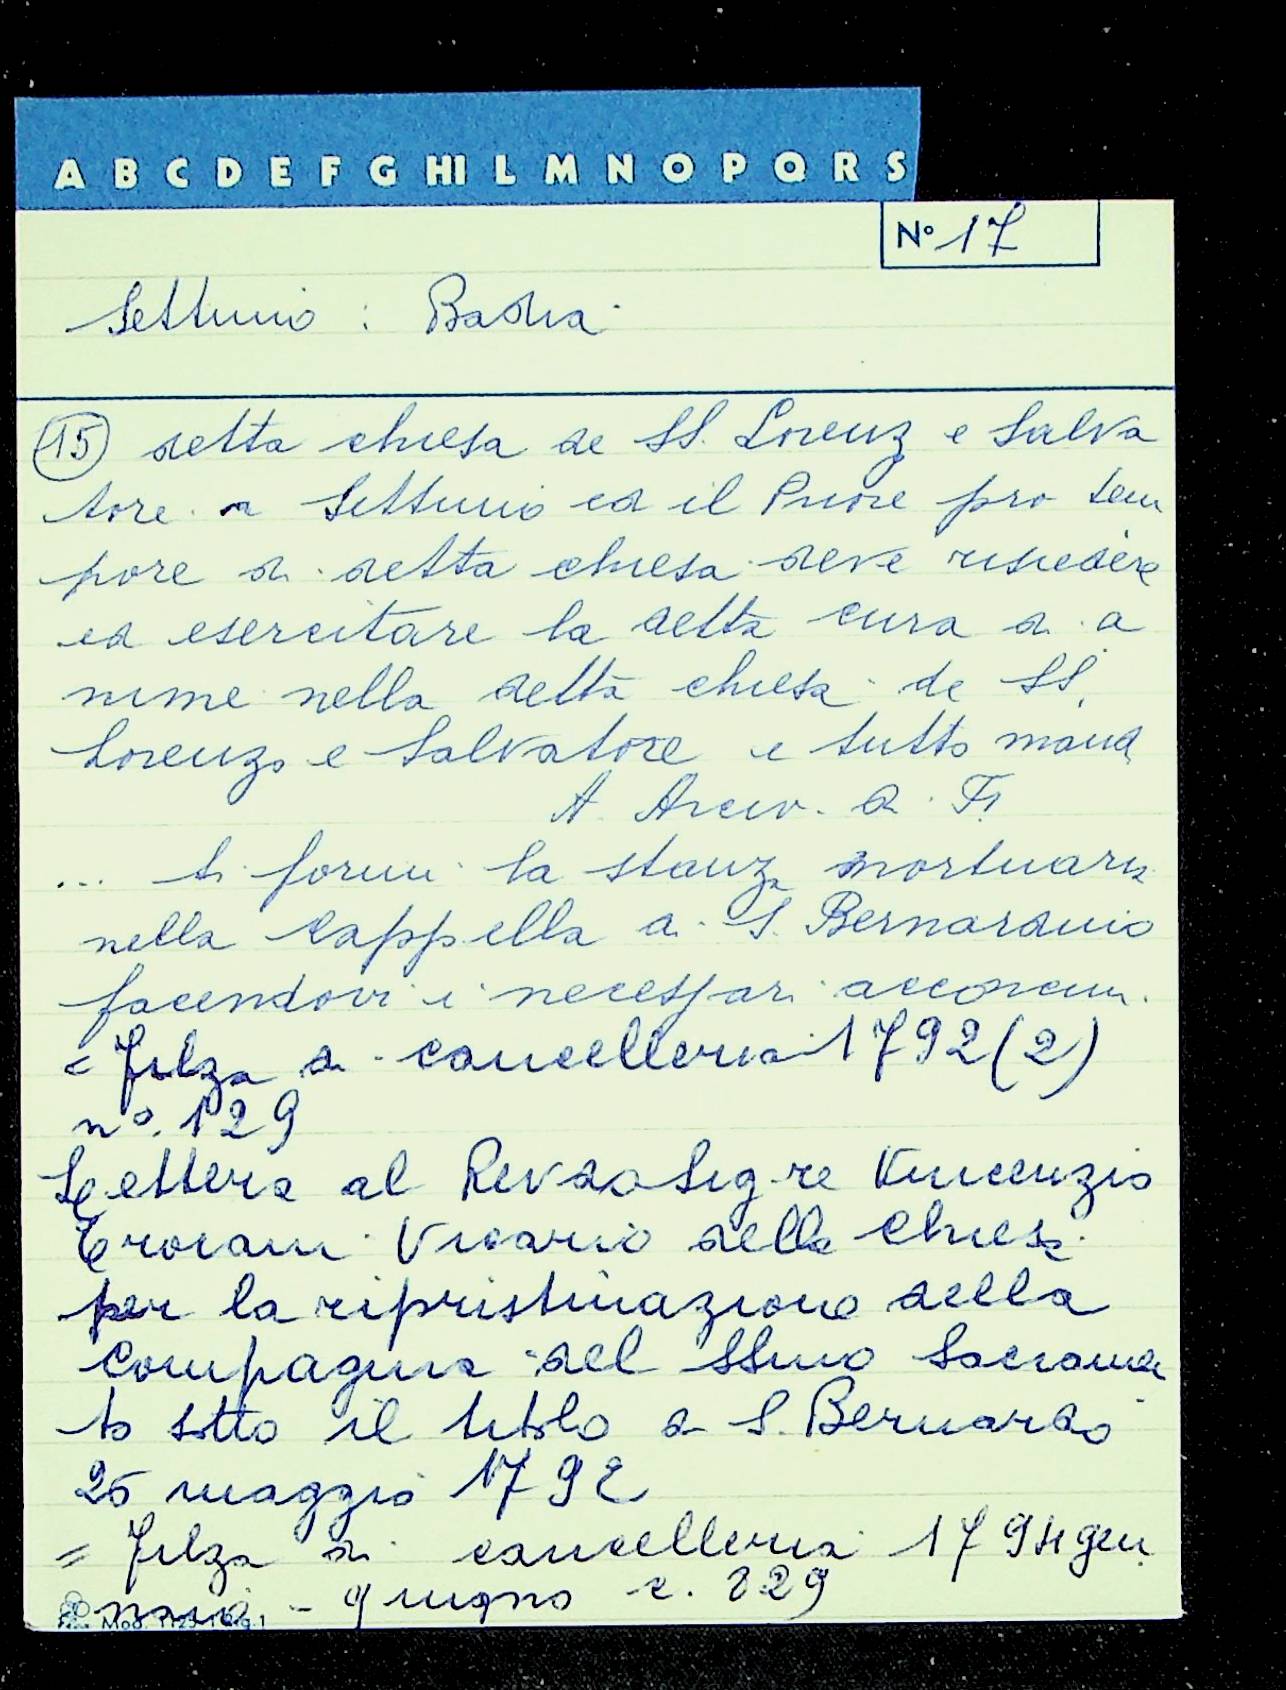 A B C D E F G HI L M N O P Q R S
N° 17
Settimo : Badia
15 detta chiesa de SS. Lorenz e Salva
tore a Settimo ed il Priore pro tem
pore di detta chiesa deve risiedere
ed esercitare la detta cura di a
nime nella detta chiesa de SS.
Lorenzo e Salvatore e tutto mand
A. Arciv. di Fi
... si formi la stanza mortuaria
nella Cappella di S. Bernardino
facendovi i necessari acconcim.
= Filza di cancelleria 1792 (2)
n°. 129
Lettera al Revdo Sigre Vincenzio
Vicario della Chiesa
per la ripristinazione della
Compagnia del SSmo Sacramen
to sotto il titolo di S. Bernardo
25 maggio 1792
= Filza di cancelleria 1794 gen
naio - giugno c. 829
Mod.